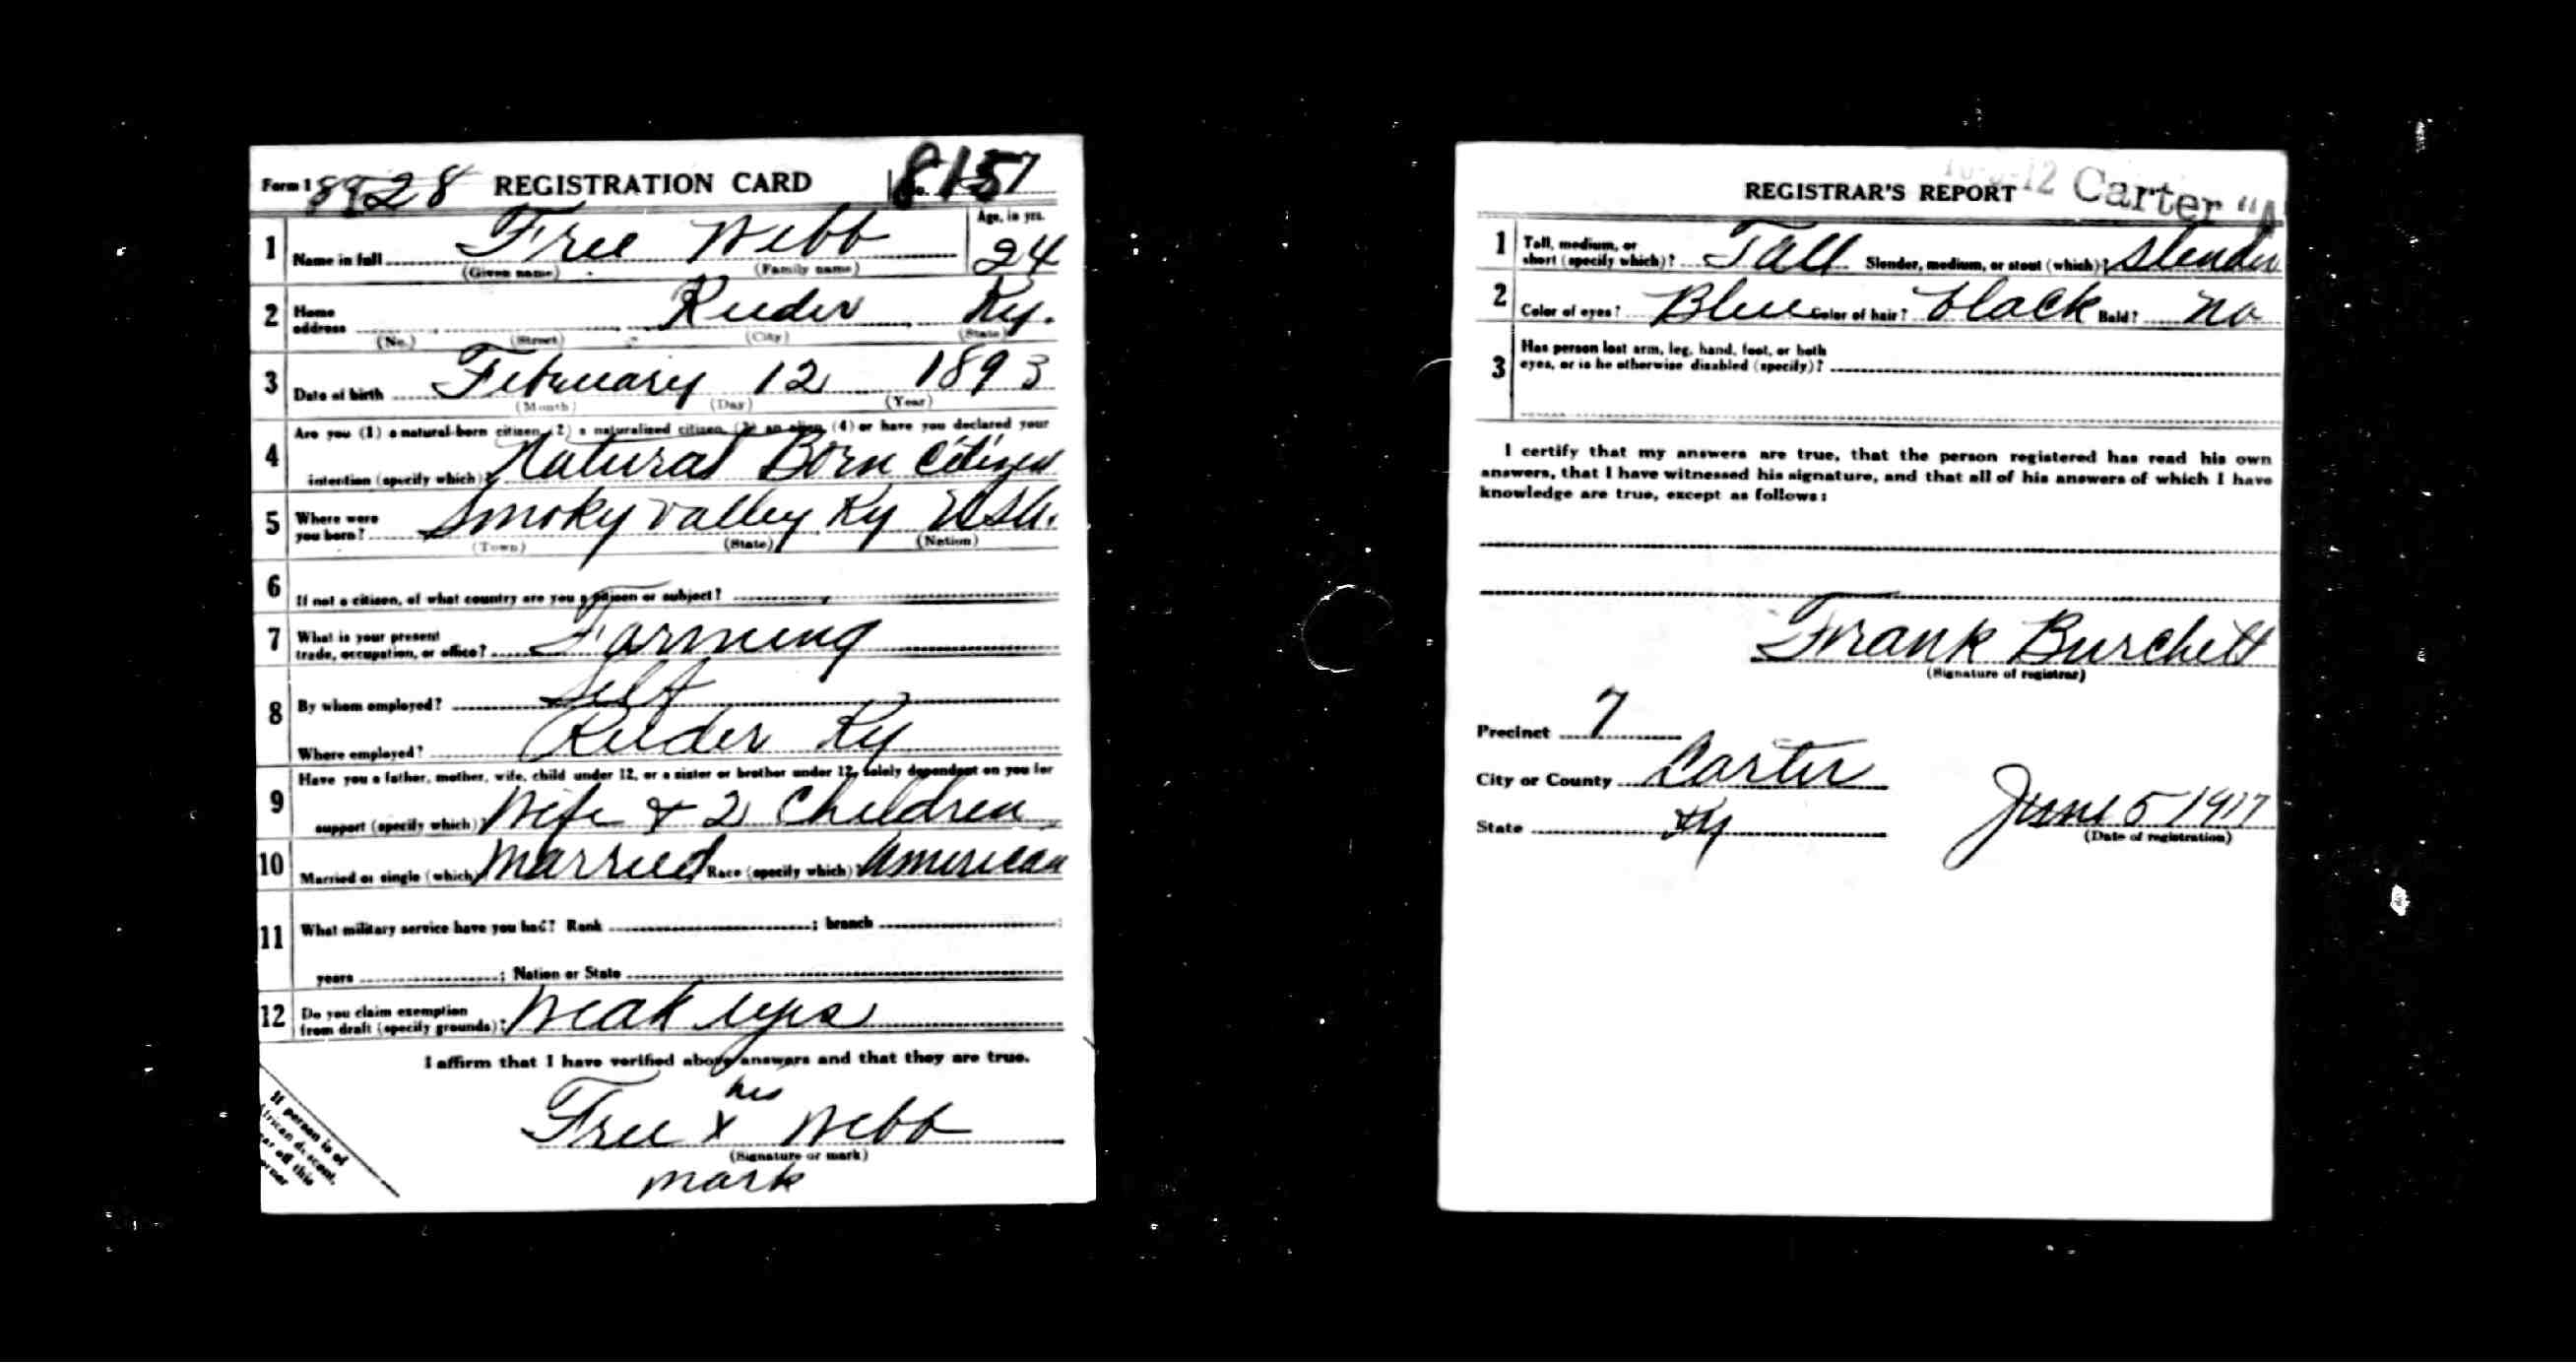 Form 1 8928 REGISTRATION CARD No. 8157
1 Name in full Free Webb Age, in yrs. 24
(Given name) (Family name)
2 Home address Reeder Ky.
(No.) (Street) (City) (State)
3 Date of birth February 12 1893
(Month) (Day) (Year)
4 Are you (1) a natural-born citizen, (2) a naturalized citizen, (3) an alien, (4) or have you declared your
intention (specify which)? Natural Born Citizen
5 Where were you born? Smoky Valley Ky USA.
(Town) (State) (Nation)
6 If not a citizen, of what country are you a citizen or subject?
7 What is your present trade, occupation, or office? Farming
8 By whom employed? Self
Where employed? Reeder Ky
9 Have you a father, mother, wife, child under 12, or a sister or brother under 12, solely dependent on you for
support (specify which)? Wife & 2 Children
10 Married or single (which)? Married Race (specify which)? American
11 What military service have you had? Rank ; branch
years ; Nation or State
12 Do you claim exemption from draft (specify grounds)? Weak eyes
I affirm that I have verified above answers and that they are true.
his
Free x Webb
(Signature or mark)
mark
If person is of
African descent,
tear off this
corner
REGISTRAR'S REPORT Carter "A
1 Tall, medium, or short (specify which)? Tall Slender, medium, or stout (which)? Slender
2 Color of eyes? Blue Color of hair? black Bald? no
3 Has person lost arm, leg, hand, foot, or both
eyes, or is he otherwise disabled (specify)?
I certify that my answers are true, that the person registered has read his own
answers, that I have witnessed his signature, and that all of his answers of which I have
knowledge are true, except as follows:
Frank Burchett
(Signature of registrar)
Precinct 7
City or County Carter
State Ky June 5 1917
(Date of registration)